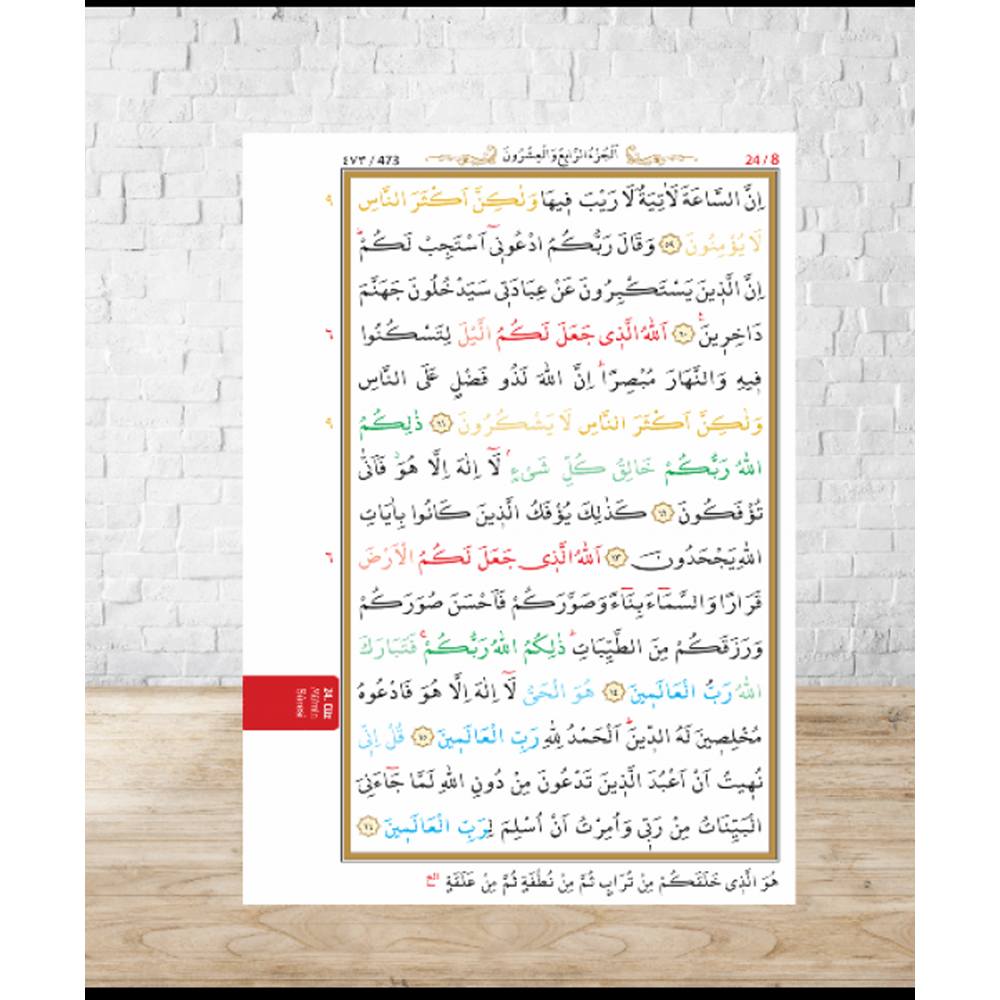 ٤٧٣ / 473
اَلْجُزْءُ الرَّابِعُ وَالْعِشْرُونَ
24 / 8
اِنَّ السَّاعَةَ لَاٰتِيَةٌ لَا رَيْبَ ف۪يهَا وَلٰكِنَّ اَكْثَرَ النَّاسِ ٩
لَا يُؤْمِنُونَ ﴿٥٩﴾ وَقَالَ رَبُّكُمُ ادْعُون۪ٓي اَسْتَجِبْ لَكُمْۜ
اِنَّ الَّذ۪ينَ يَسْتَكْبِرُونَ عَنْ عِبَادَت۪ي سَيَدْخُلُونَ جَهَنَّمَ
دَاخِر۪ينَ۟ ﴿٦٠﴾ اَللّٰهُ الَّذ۪ي جَعَلَ لَكُمُ الَّيْلَ لِتَسْكُنُوا ٦
ف۪يهِ وَالنَّهَارَ مُبْصِرًاۜ اِنَّ اللّٰهَ لَذُو فَضْلٍ عَلَى النَّاسِ
وَلٰكِنَّ اَكْثَرَ النَّاسِ لَا يَشْكُرُونَ ﴿٦١﴾ ذٰلِكُمُ ٩
اللّٰهُ رَبُّكُمْ خَالِقُ كُلِّ شَيْءٍۢ لَٓا اِلٰهَ اِلَّا هُوَۘ فَاَنّٰى
تُؤْفَكُونَ ﴿٦٢﴾ كَذٰلِكَ يُؤْفَكُ الَّذ۪ينَ كَانُوا بِاٰيَاتِ
اللّٰهِ يَجْحَدُونَ ﴿٦٣﴾ اَللّٰهُ الَّذ۪ي جَعَلَ لَكُمُ الْاَرْضَ ٦
قَرَارًا وَالسَّمَٓاءَ بِنَٓاءً وَصَوَّرَكُمْ فَاَحْسَنَ صُوَرَكُمْ
وَرَزَقَكُمْ مِنَ الطَّيِّبَاتِۜ ذٰلِكُمُ اللّٰهُ رَبُّكُمْۚ فَتَبَارَكَ
اللّٰهُ رَبُّ الْعَالَم۪ينَ ﴿٦٤﴾ هُوَ الْحَيُّ لَٓا اِلٰهَ اِلَّا هُوَ فَادْعُوهُ
مُخْلِص۪ينَ لَهُ الدّ۪ينَۜ اَلْحَمْدُ لِلّٰهِ رَبِّ الْعَالَم۪ينَ ﴿٦٥﴾ قُلْ اِنّ۪ي
نُه۪يتُ اَنْ اَعْبُدَ الَّذ۪ينَ تَدْعُونَ مِنْ دُونِ اللّٰهِ لَمَّا جَٓاءَنِيَ
الْبَيِّنَاتُ مِنْ رَبّ۪ي وَاُمِرْتُ اَنْ اُسْلِمَ لِرَبِّ الْعَالَم۪ينَ ﴿٦٦﴾
هُوَ الَّذ۪ي خَلَقَكُمْ مِنْ تُرَابٍ ثُمَّ مِنْ نُطْفَةٍ ثُمَّ مِنْ عَلَقَةٍ الخ
24. Cüz
Mü'min
Sûresi